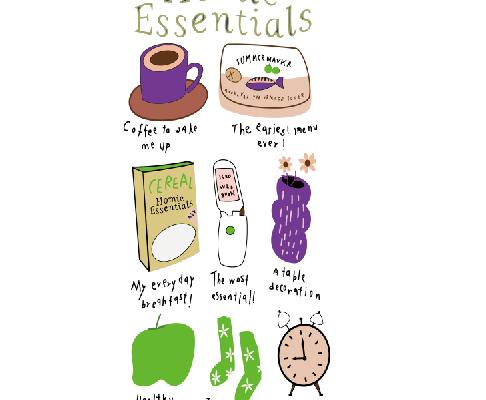 Essentials
Coffee to wake
me up
The easiest menu
ever!
CEREAL
Homie
Essentials
My everyday
breakfast!
The most
essential!
A table
decoration
Healthy